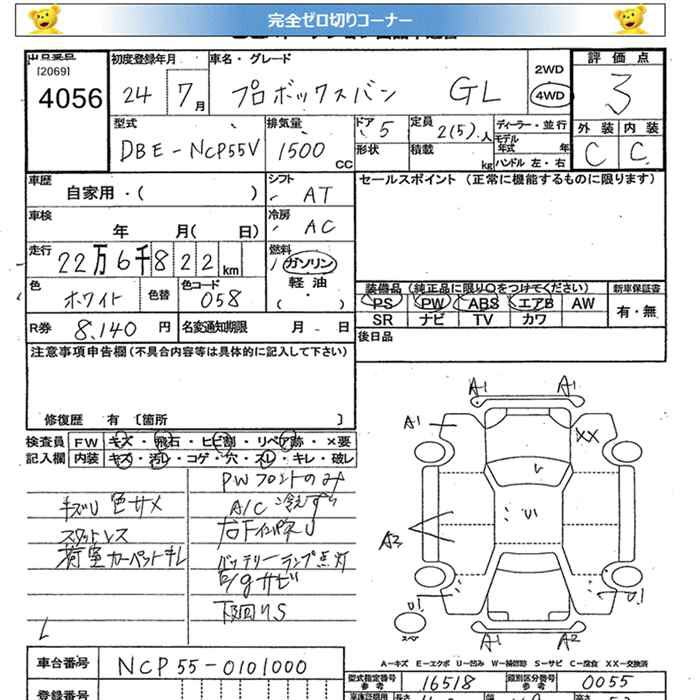 完全ゼロ切りコーナー
出品番号 初度登録年月 車名・グレード 評価点
[2069]
4056 24 7月 プロボックスバン GL 2WD 4WD 3
型式 排気量 ドア 5 定員 2(5)人 ディーラー・並行 外装 内装
DBE-NCP55V 1500 CC 形状 積載 kg モデル年式 年 ハンドル 左・右 C C
車歴 自家用・( ) シフト AT セールスポイント (正常に機能するものに限ります)
車検 年 月( 日) 冷房 AC
走行 22万6千822km 燃料 ガソリン 軽油 ( )
色 ホワイト 色替 色コード 058
装備品 (純正品に限り○をつけてください) 新車保証書
PS PW ABS エアB AW 有・無
SR ナビ TV カワ
R券 8,140 円 名変通知期限 月 - 日 後日品
注意事項申告欄(不具合内容等は具体的に記入して下さい)
修復歴 有 [箇所 ]
検査員 FW キズ・飛石・ヒビ割・リペア跡・×要
記入欄 内装 キズ・汚レ・コゲ・穴・スレ・キレ・破レ
PWフロントのみ
キズU 色サメ A/C 冷えず
スタットレス
荷室カーペットキレ バッテリーランプ点灯
E/gサビ
下回りS
A1 A1
A1 XX
U
U1
A3
U1 U1
スペ A1 A2
A-キズ E-エクボ U-凹み W-補修跡 S-サビ C-腐食 XX-交換済
車台番号 NCP55-0101000
型式指定番号 参考 16518 類別区分番号 参考 0055
登録番号